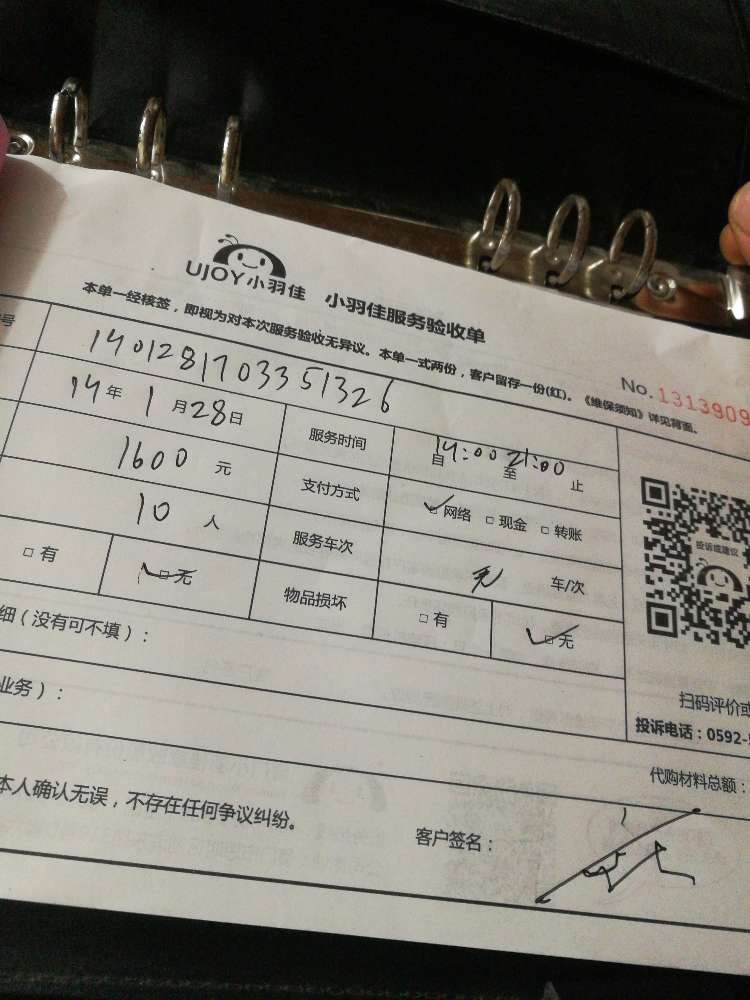 UJOY小羽佳 小羽佳服务验收单
本单一经核签，即视为对本次服务验收无异议。本单一式两份，客户留存一份(红)。《维保须知》详见背面。
No.1313909
号 1401281703351326
14年1月28日 服务时间 自14:00至21:00止
1600元 支付方式 □网络 □现金 □转账
10人 服务车次 无 车/次
□有 □无 物品损坏 □有 □无
投诉或建议
细（没有可不填）：
业务）：
扫码评价或
投诉电话：0592-
代购材料总额：
本人确认无误，不存在任何争议纠纷。
客户签名：